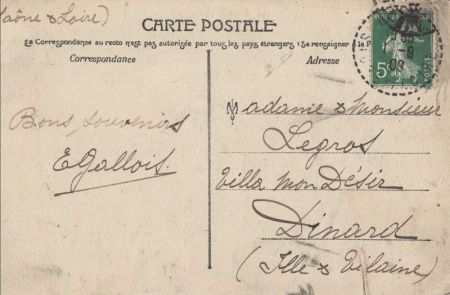 (Saône & Loire)
CARTE POSTALE
La Correspondance au recto n'est pas autorisée par tous les pays étrangers (Se renseigner à la P
Correspondance
Adresse
Bons souvenirs
EGallois.
Madame & Monsieur
Legros
Villa mon Désir
Dinard
(Ille & Vilaine)
5c
9
09